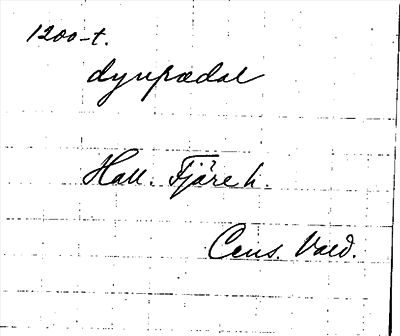 1200-t.
dynrædal
Hall. Fjäre h.
Cens. Vald.